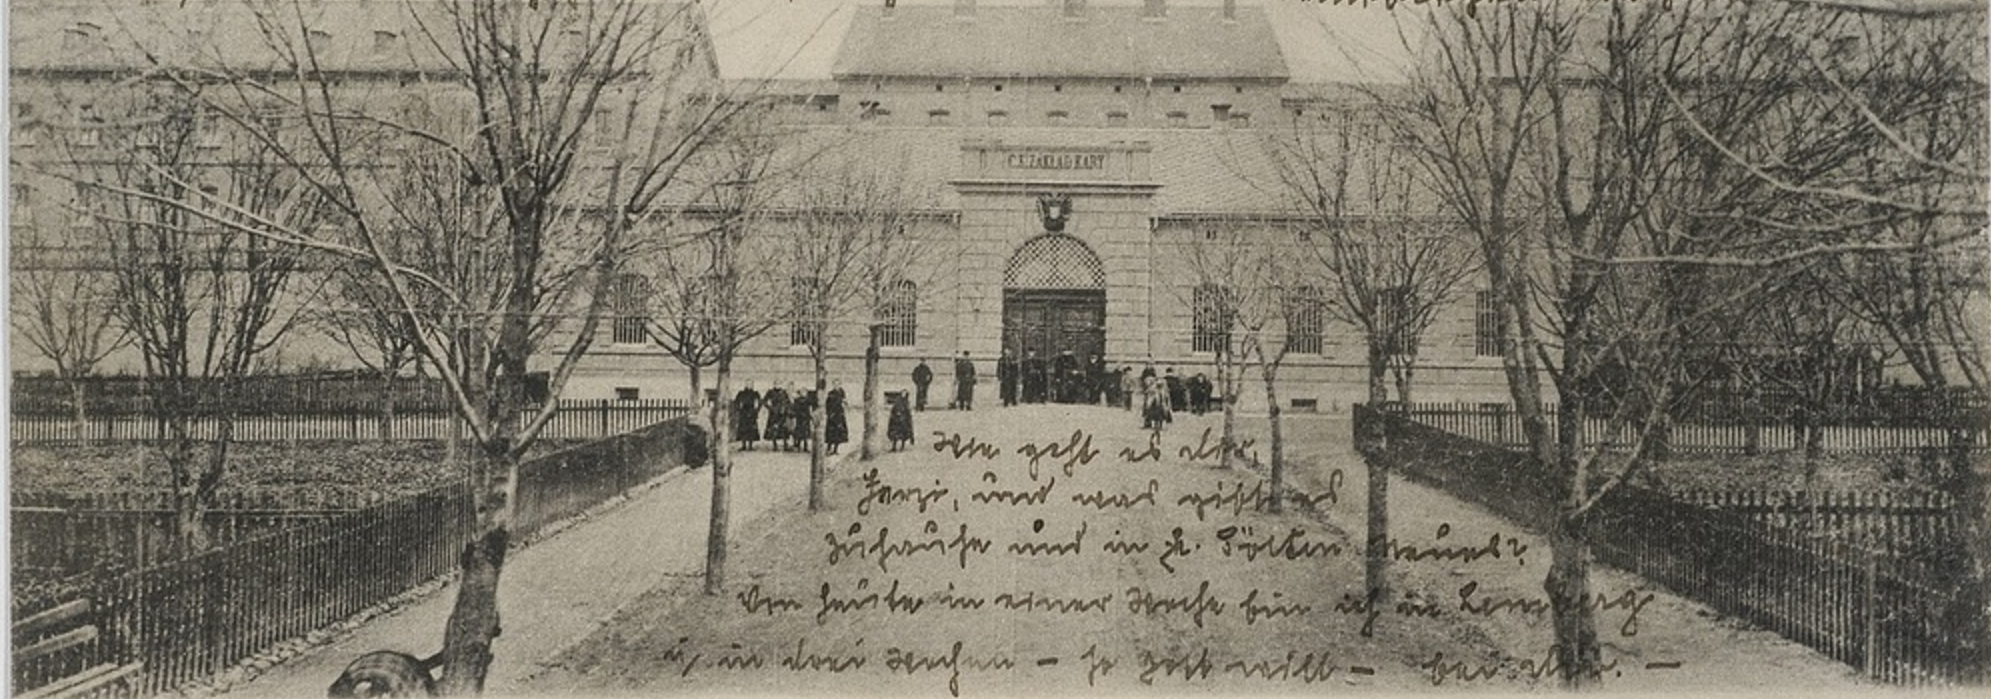 C. K. ZAKŁAD KARY
Wie geht es dir,
Herzi, und was gibt es
zuhause und in St. Pölten Neues?
Von heute in einer Woche bin ich in Lemberg
u. in drei Wochen – so Gott will – bei dir. –